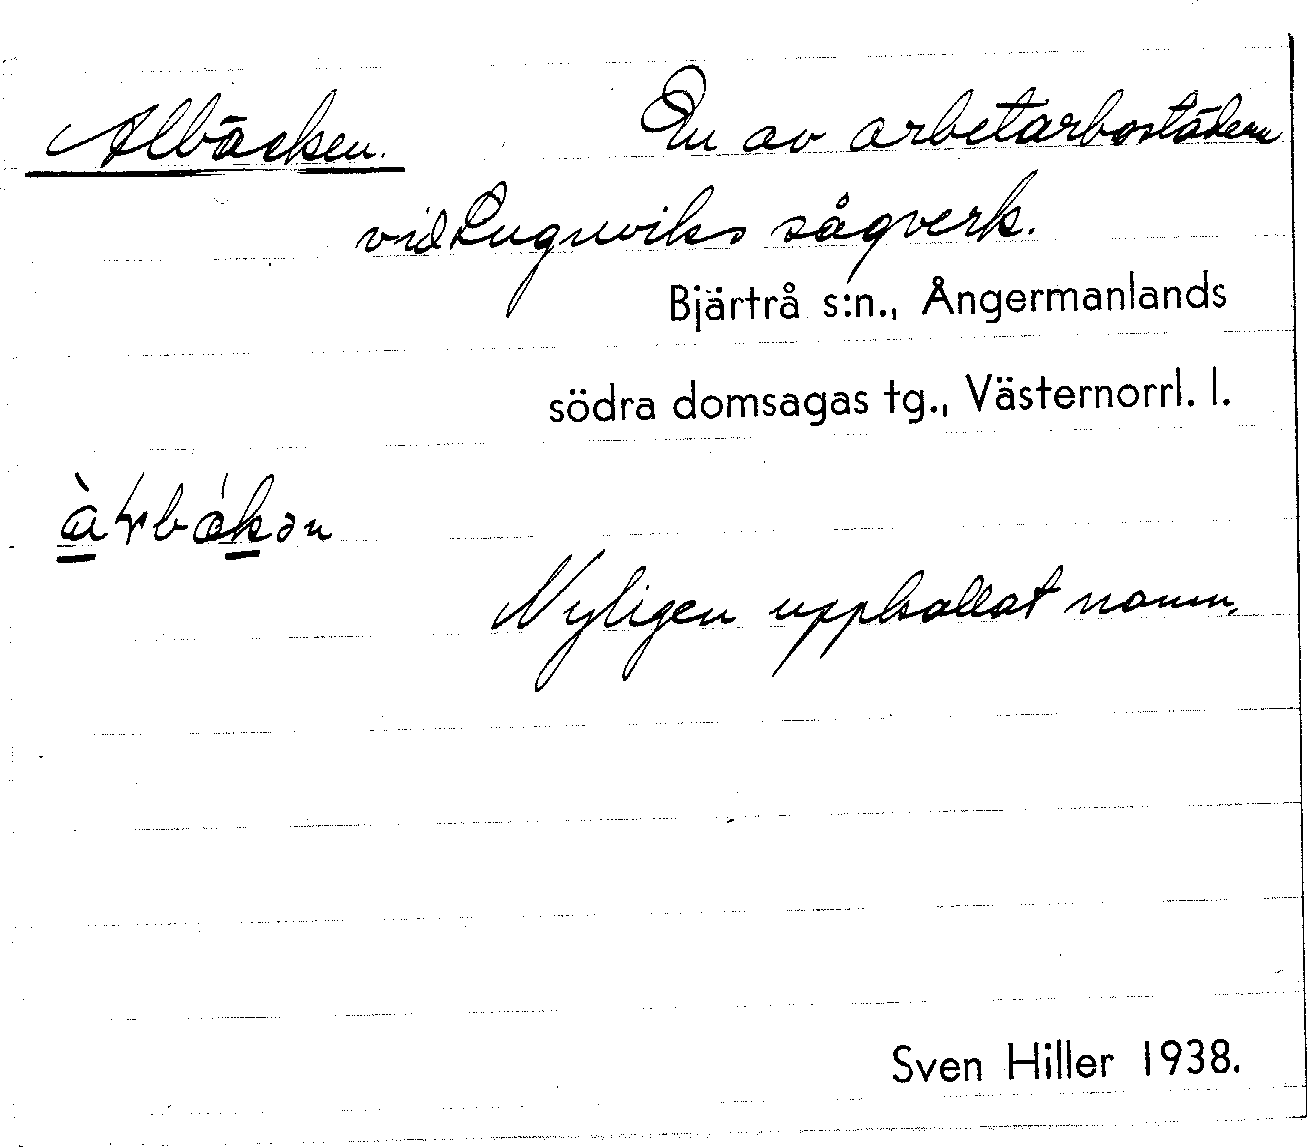 Albäcken. En av arbetarbostäderna
vid Lugnviks sågverk.
Bjärtrå s:n., Ångermanlands
södra domsagas tg., Västernorrl. l.
Nyligen uppkallat namn.
Sven Hiller 1938.